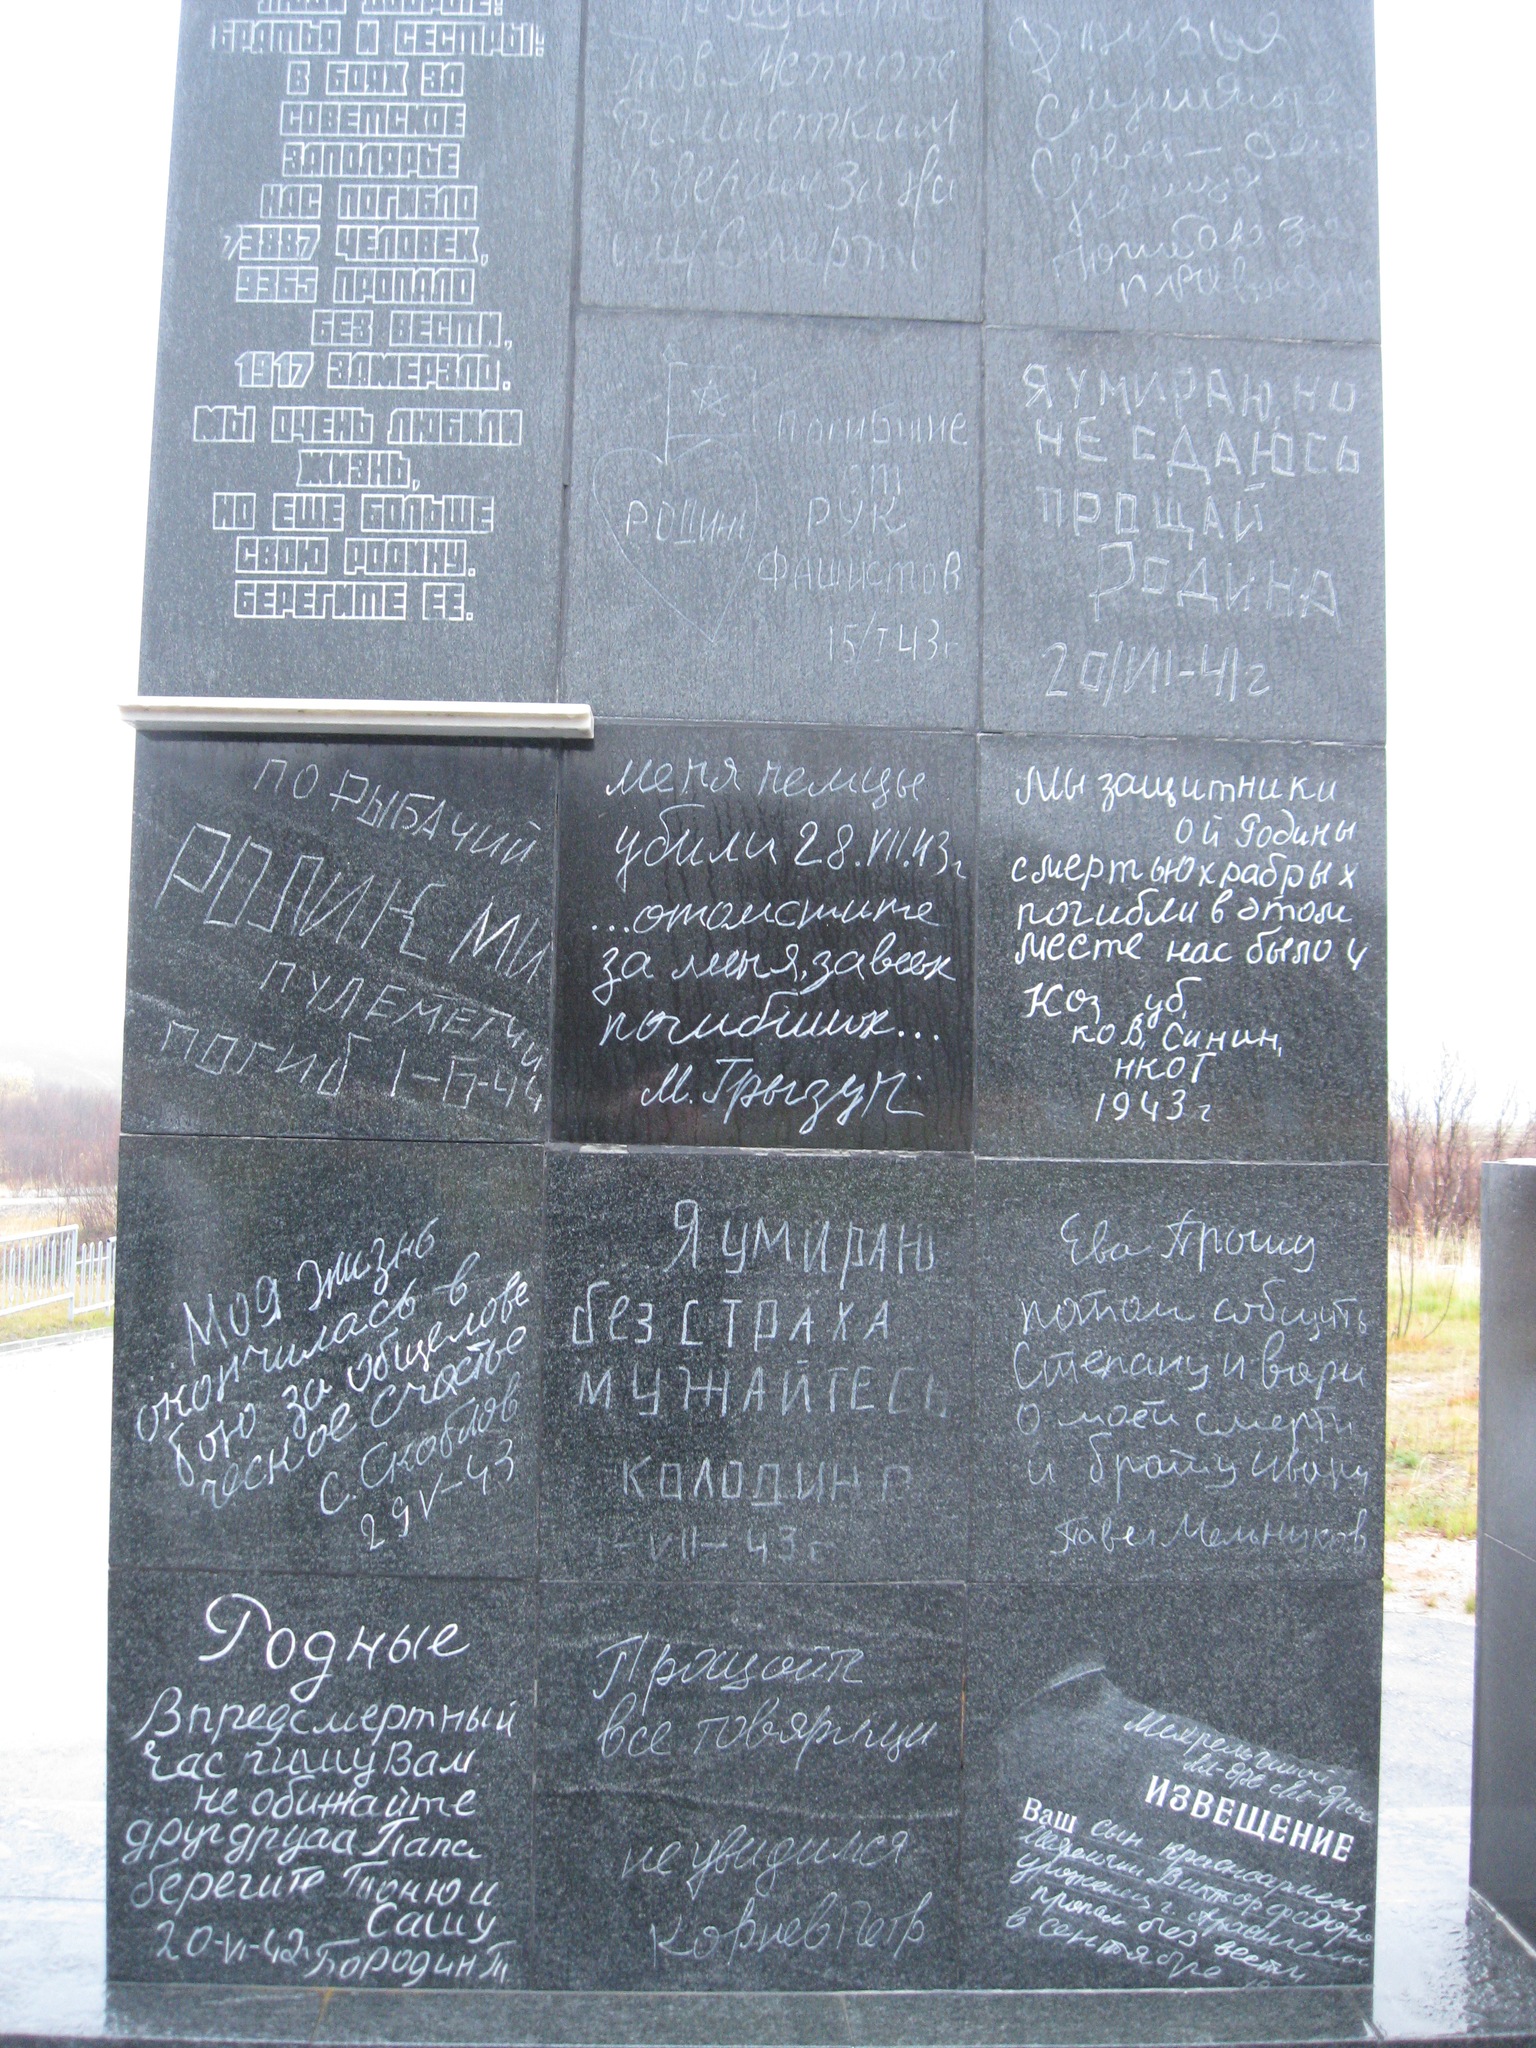 ЛЮДИ ДОБРЫЕ!
БРАТЬЯ И СЕСТРЫ!
В БОЯХ ЗА
СОВЕТСКОЕ
ЗАПОЛЯРЬЕ
НАС ПОГИБЛО
73887 ЧЕЛОВЕК,
9365 ПРОПАЛО
БЕЗ ВЕСТИ,
1917 ЗАМЕРЗЛО.
МЫ ОЧЕНЬ ЛЮБИЛИ
ЖИЗНЬ,
НО ЕЩЕ БОЛЬШЕ
СВОЮ РОДИНУ.
БЕРЕГИТЕ ЕЕ.
Фашистким
Извергам за На
шу Смерть
Друзья
погибаю за
РОДИНА
Погибшие
от
РУК
ФАШИСТОВ
15/I 43г
Я УМИРАЮ, НО
НЕ СДАЮСЬ
ПРОЩАЙ
РОДИНА
20/VII-41г
ПО РЫБАЧИЙ
РОДИК МИ
ПУЛЕМЕТЧИ
ПОГИБ 1-5-44
меня немцы
убили 28.VII.43г
...отомстите
за меня, за всех
погибших...
М. Грызун
Мы защитники
ой Родины
смертью храбрых
погибли в этом
месте нас было 4
Коз уб,
ков, Синин,
нкот
1943г
Моя жизнь
окончилась в
бою за общелове
ческое счастье
С. Скоблов
29 V-43
Я УМИРАЮ
без СТРАХА
МУЖАЙТЕСЬ
КОЛОДИН П
1-VII-43г
Ева Прошу
потом собщить
Степану и вари
о моей смерти
и брату Ивану
Павел Мельников
Родные
В предсмертный
час пишу Вам
не обижайте
друг друга Папа
берегите Тоню и
Сашу
20-VI-42г Бородин Т
Прощайте
все товарищи
не увидимся
Корнев Петр
ИЗВЕЩЕНИЕ
Ваш сын красноармеец
Виктор Федоро
уроженец г. Архангельска
пропал без вести
в сентябре